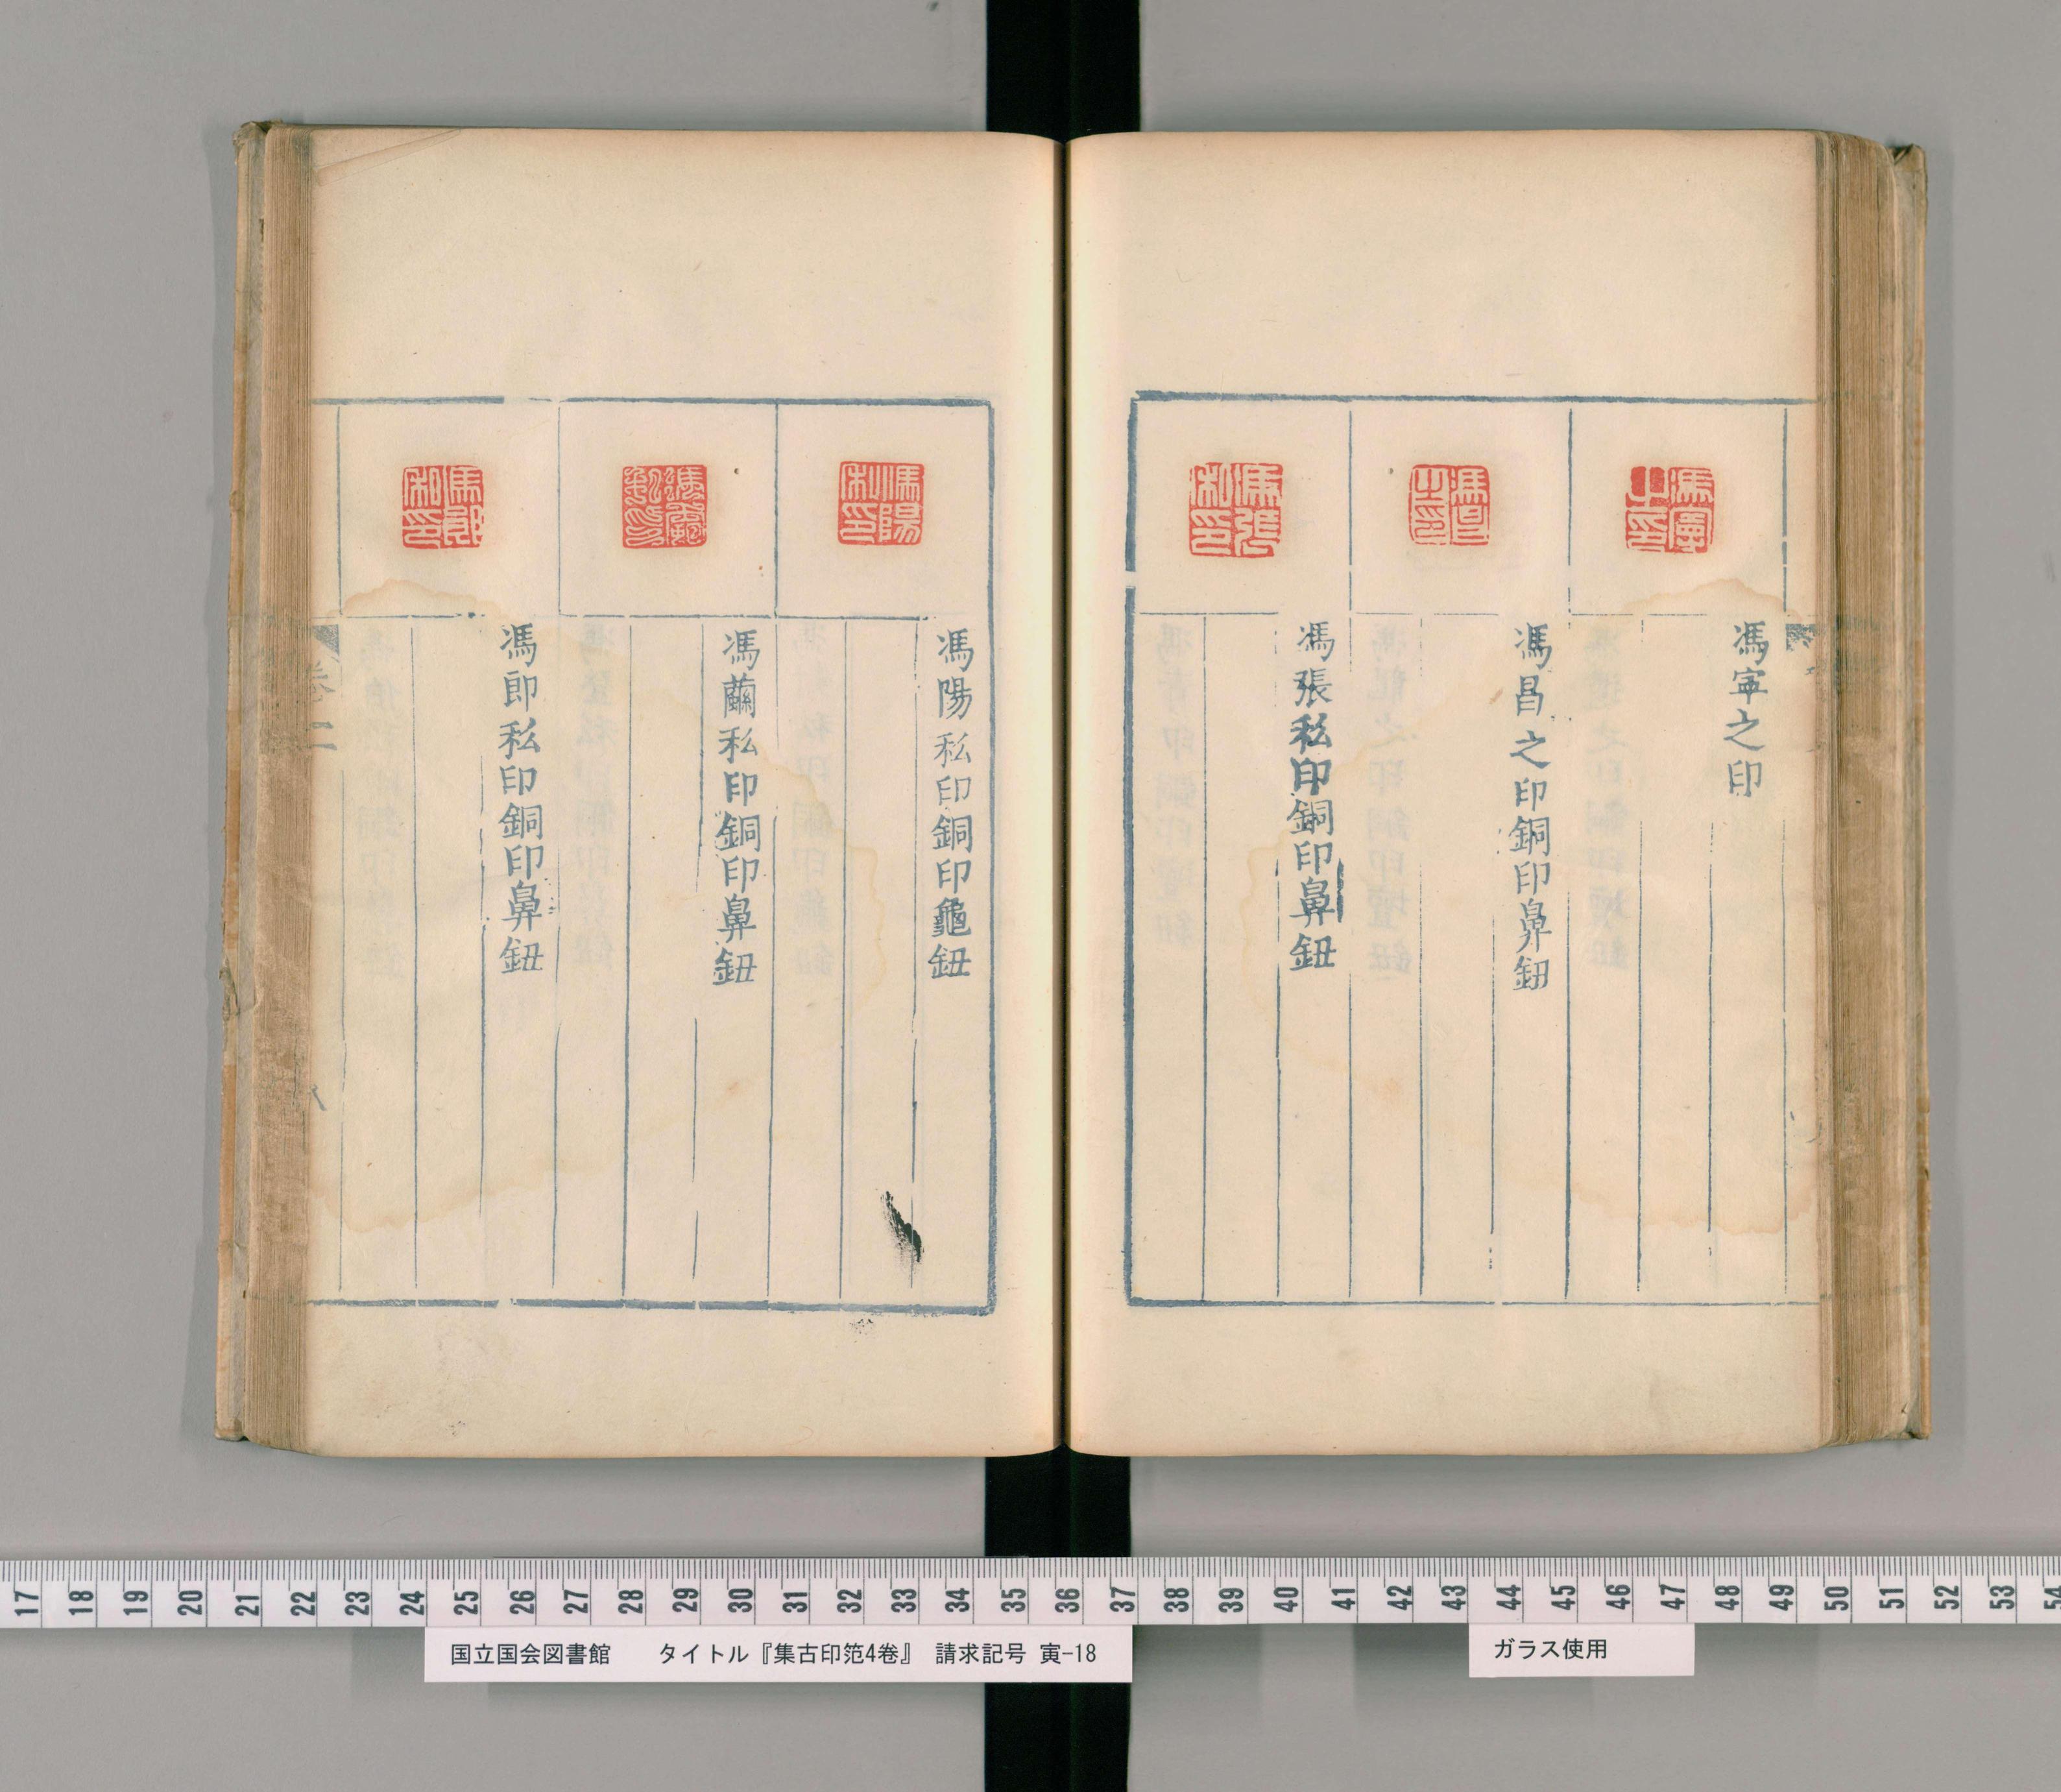 馮寍之印
馮昌之印銅印鼻鈕
馮張私印銅印鼻鈕
馮陽私印銅印龜鈕
馮繭私印銅印鼻鈕
馮郎私印銅印鼻鈕
卷二
17 18 19 20 21 22 23 24 25 26 27 28 29 30 31 32 33 34 35 36 37 38 39 40 41 42 43 44 45 46 47 48 49 50 51 52 53 54
国立国会図書館 タイトル『集古印笵4巻』 請求記号 寅-18
ガラス使用